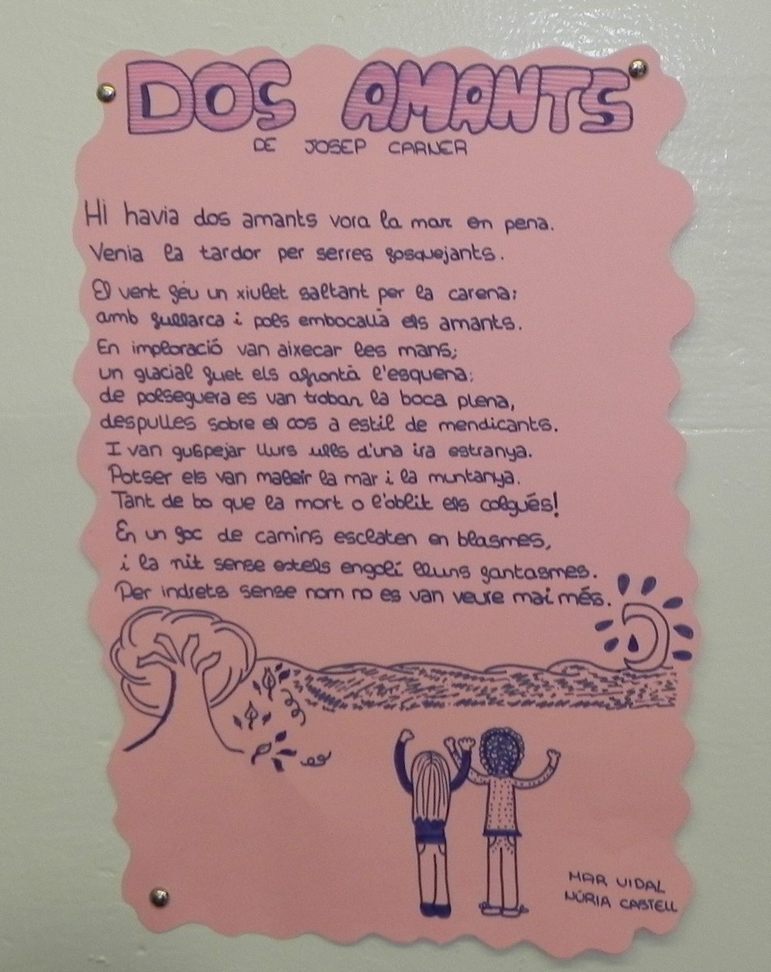 DOS AMANTS
DE JOSEP CARNER
Hi havia dos amants vora la mar en pena.
Venia la tardor per serres fosquejants.
El vent féu un xiulet saltant per la carena:
amb fullarca i pols embocallà els amants.
En imploració van aixecar les mans;
un glacial fuet els afrontà l'esquena:
de polseguera es van trobar la boca plena,
despulles sobre el cos a estil de mendicants.
I van guspejar llurs ulls d'una ira estranya.
Potser els van maleir la mar i la muntanya.
Tant de bo que la mort o l'oblit els colgués!
En un foc de camins esclaten en blasmes,
i la nit sense estels engolí lluns fantasmes.
Per indrets sense nom no es van veure mai més.
MAR VIDAL
NÚRIA CASTELL